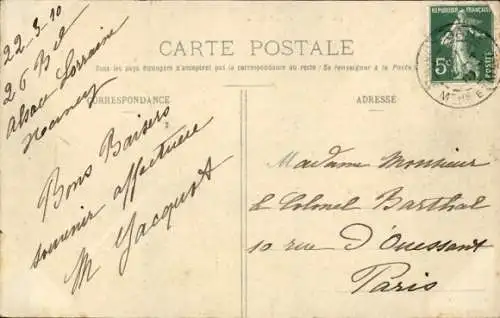 CARTE POSTALE
Tous les pays étrangers n'acceptent pas la correspondance au recto (Se renseigner à la Poste)
CORRESPONDANCE
ADRESSE
22-3-10
26 Bd
Alsace Lorraine
Nancy
Bons Baisers
souvenir affectueux
M Jacquot
Madame Monsieur
le Colonel Barthal
10 rue D'Ouessant
Paris
RÉPUBLIQUE FRANÇAISE
5c
POSTES